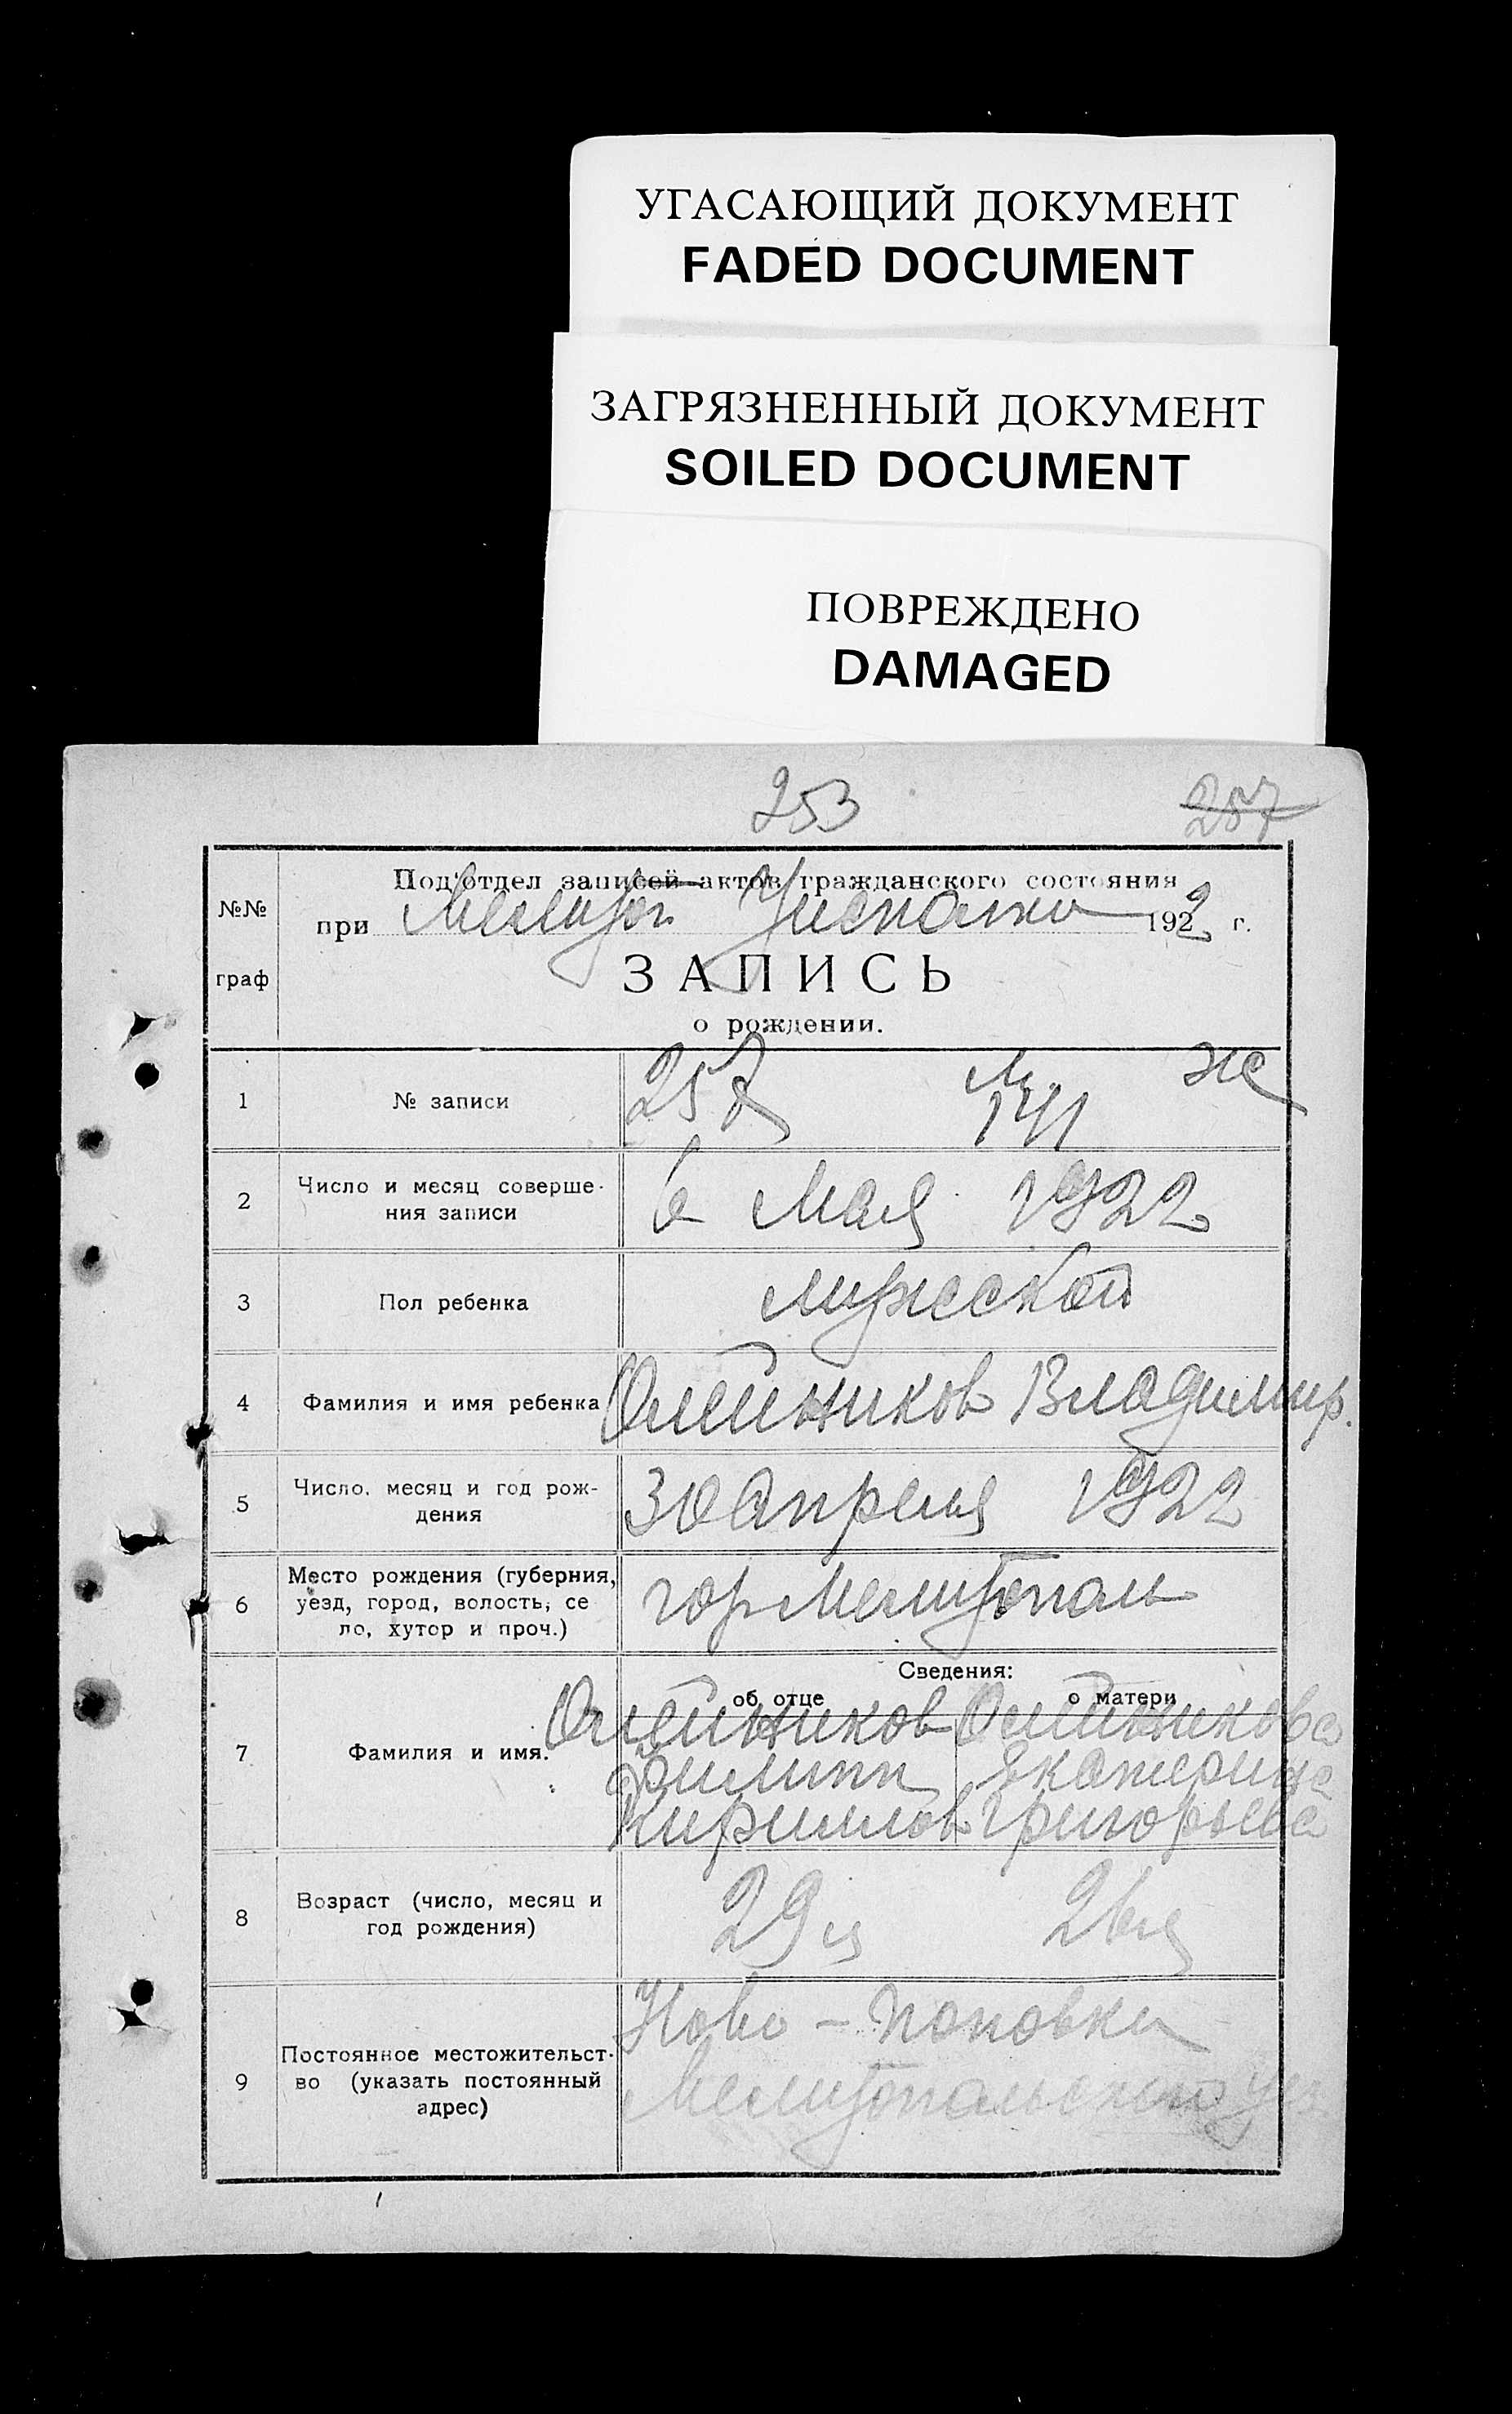 УГАСАЮЩИЙ ДОКУМЕНТ
FADED DOCUMENT
ЗАГРЯЗНЕННЫЙ ДОКУМЕНТ
SOILED DOCUMENT
ПОВРЕЖДЕНО
DAMAGED
253 257
Под'отдел записей актов гражданского состояния
№№ при Мелитоп. Уисполко 1922 г.
граф ЗАПИСЬ
о рождении.
1 № записи 257 м. ж
141
2 Число и месяц соверше-
ния записи 6 Мая 1922
3 Пол ребенка мужской
4 Фамилия и имя ребенка Олейников Владимир.
5 Число, месяц и год рож-
дения 30 Апреля 1922
6 Место рождения (губерния,
уезд, город, волость, се
ло, хутор и проч.) гор Мелитополь
Сведения:
об отце о матери
7 Фамилия и имя. Олейников Олейникова
Филипп Екатерина
Кириллов Григорьева
8 Возраст (число, месяц и
год рождения) 29 л 26 л
9 Постоянное местожительст-
во (указать постоянный
адрес) Ново - Поповка
Мелитопольского уез